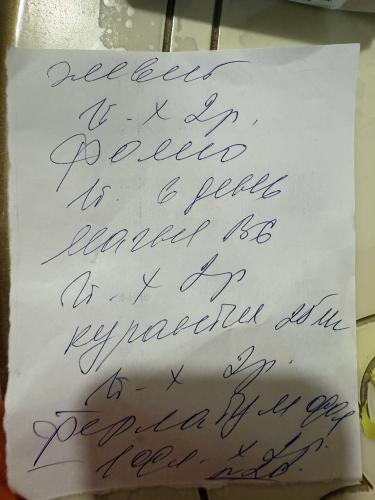 элевит
1т - х 2р.
Фолио
1т. в день
магни В6
1т - х 2р
курантил 25 мг
1т - х 2р.
Ферлатум фол
1 фл - х 2р.